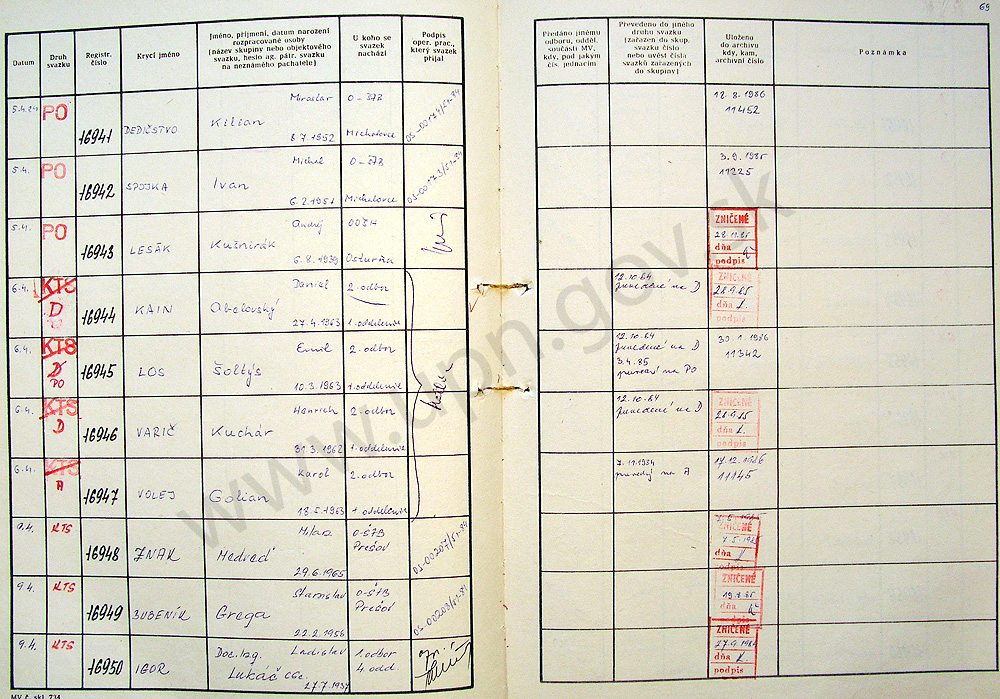 69
Datum
Druh
svazku
Registr.
číslo
Krycí jméno
Jméno, příjmení, datum narození
rozpracované osoby
(název skupiny nebo objektového
svazku, heslo ag. pátr. svazku
na neznámého pachatele)
U koho se
svazek
nachází
Podpis
oper. prac.,
který svazek
přijal
Předáno jinému
odboru, odděl.
součásti MV,
kdy, pod jakým
čís. jednacím
Převedeno do jiného
druhu svazku
(zařazen do skup.
svazku číslo
nebo uvést čísla
svazků zařazených
do skupiny)
Uloženo
do archivu
kdy, kam,
archivní číslo
Poznámka
5.4.84 PO 16941 DEDIČSTVO Miroslav Kilian 8.7.1952 Michalovce
12.8.1986
11452
5.4. PO 16942 SPOJKA Michal Ivan 6.2.1951 Michalovce
3.9.1985
11225
5.4. PO 16943 LESÁK Andrej Kušnirák 6.8.1939 Osturňa
ZNIČENÉ
28.11.85
dňa
podpis
6.4. KTS D 16944 KAIN Daniel 27.4.1963 2. odbor 1. oddelenie
12.10.84
prevedené na D
ZNIČENÉ
28.9.85
dňa
podpis
6.4. KTS D PO 16945 LOS Emil Šoltýs 10.3.1963 2. odbor 1. oddelenie
12.10.84
prevedené na D
3.4.85
na PO
30.1.1986
11342
6.4. KTS D 16946 VARIČ Henrich Kuchár 31.3.1962 2. odbor 1. oddelenie
12.10.84
prevedené na D
ZNIČENÉ
28.9.85
dňa
podpis
6.4. KTS A 16947 VOLEJ Karol Golian 18.5.1963 2. odbor 1. oddelenie
na A
17.12.1986
11145
9.4. KTS 16948 ZNAK Milan Medveď 29.6.1965 O-ŠTB Prešov
ZNIČENÉ
dňa
podpis
9.4. KTS 16949 BUBENÍK Stanislav Grega 22.2.1956 O-ŠTB Prešov
ZNIČENÉ
19.8.85
dňa
podpis
9.4. KTS 16950 IGOR Doc. Ing. Ladislav Lukáč CSc. 27.7.1937 1. odbor 4. odd.
ZNIČENÉ
dňa
podpis
MV č. skl. 734
www.upn.gov.sk